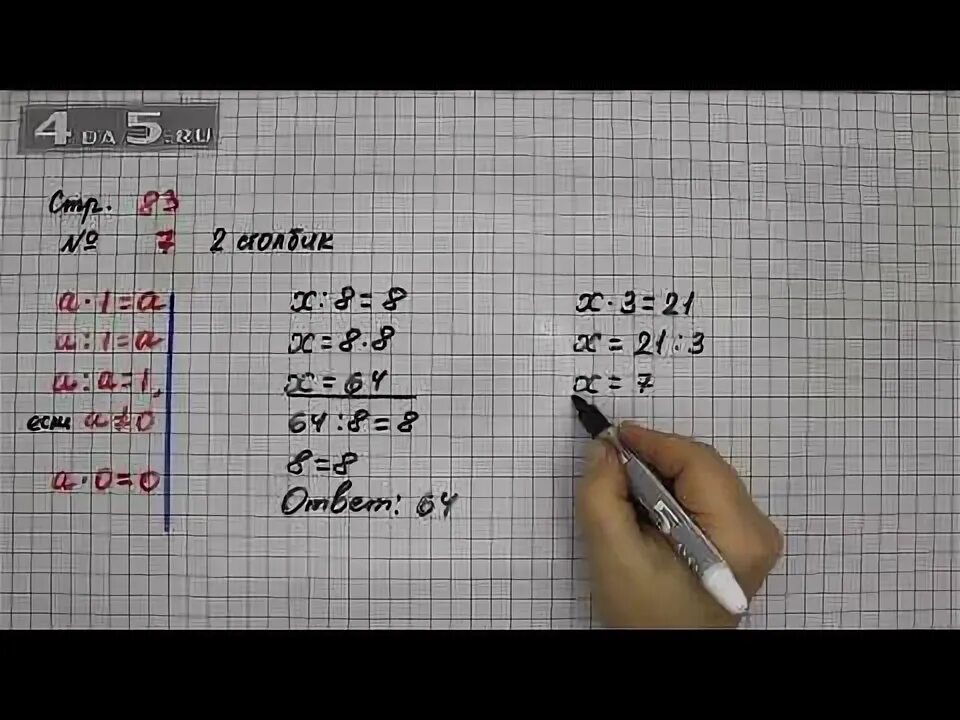 4DA5.RU
Стр. 83
№ 7 2 столбик
a · 1 = a
a : 1 = a
a : a = 1,
если a ≠ 0
a · 0 = 0
x : 8 = 8
x = 8 · 8
x = 64
64 : 8 = 8
8 = 8
Ответ: 64
x · 3 = 21
x = 21 : 3
x = 7